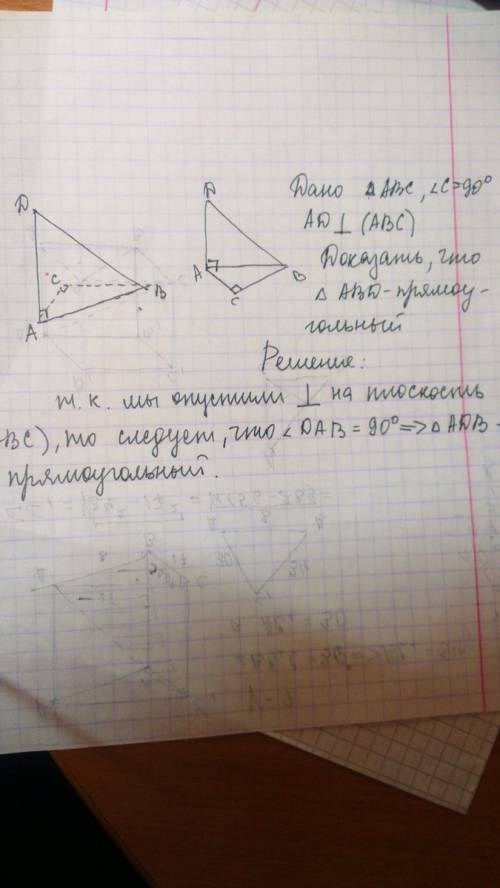 Дано ΔABC, ∠C=90°
AD⊥(ABC)
Доказать, что
Δ ABD-прямоу-
гольный
D
C
B
A
D
A
B
C
Решение:
т.к. мы опустили ⊥ на плоскость
BC), то следует, что ∠DAB=90°=>ΔADB-
прямоугольный.